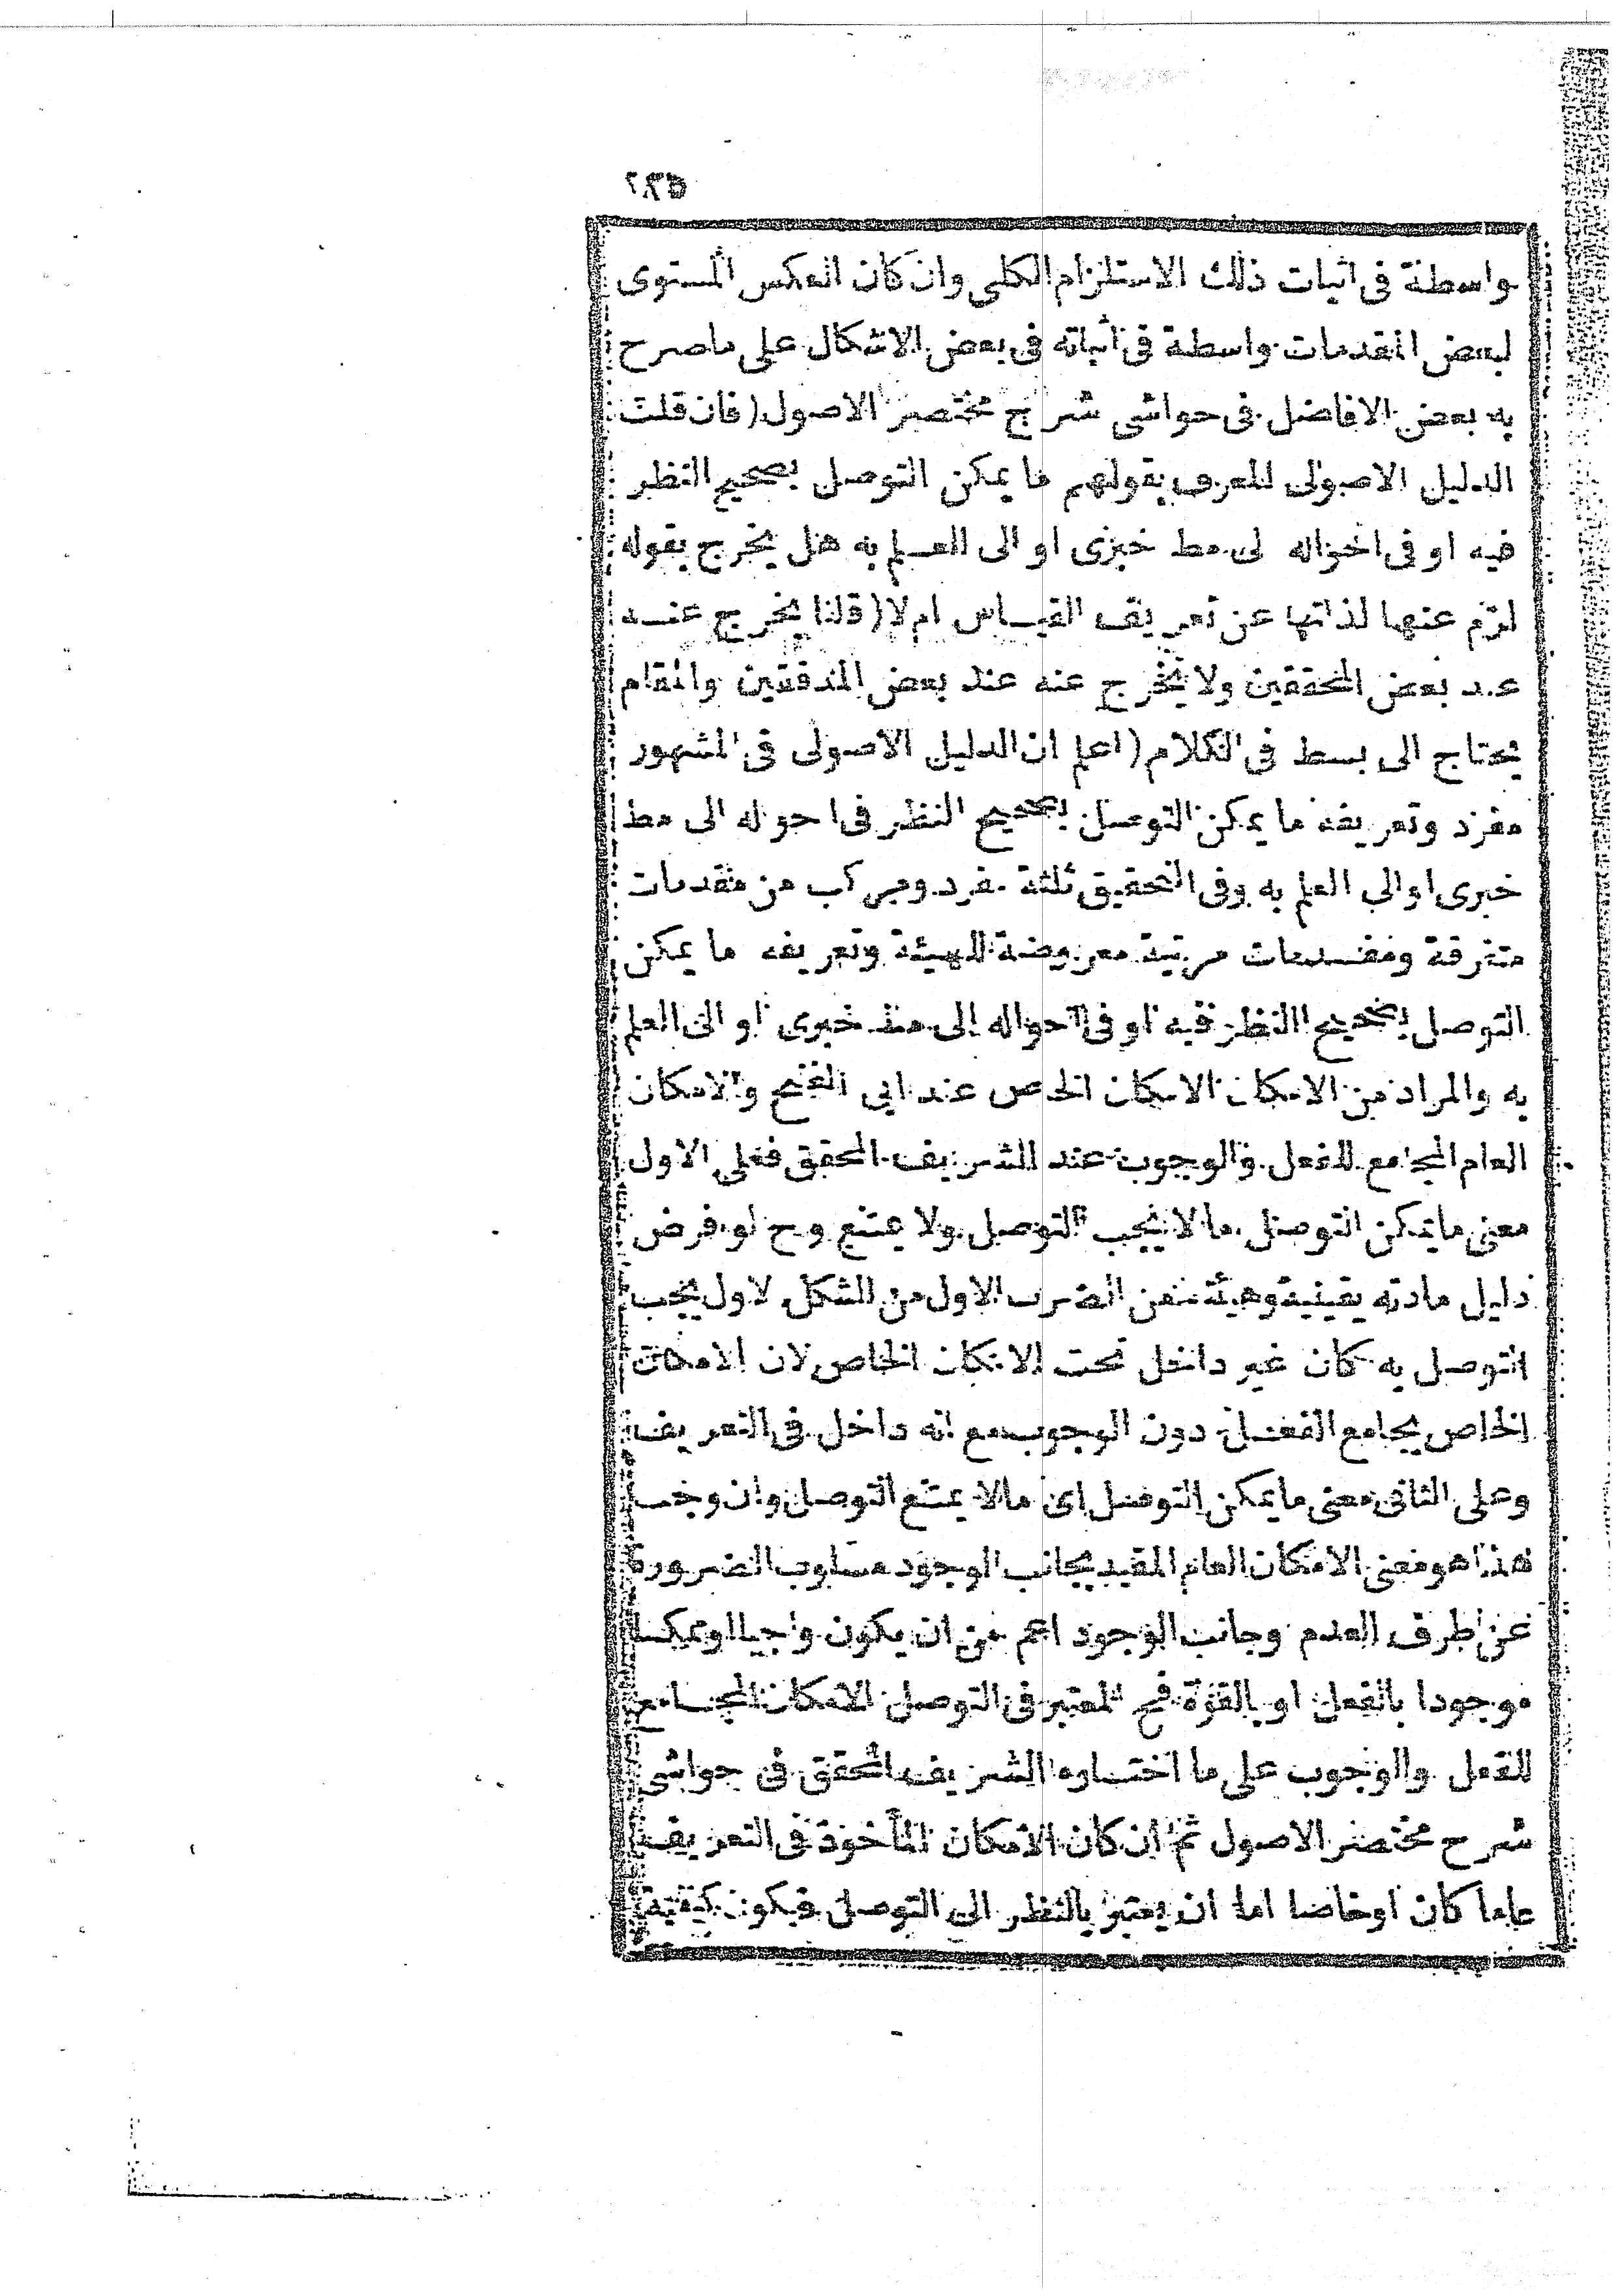 واسطة فى اثبات ذلك الاستلزام الكلى وان كان العكس المستوى
لبعض المقدمات واسطة فى اثباته فى بعض الاشكال على ماصرح
به بعض الافاضل فى حواشى شرح مختصر الاصول (فان قلت
الدليل الاصولى المعرف بقولهم ما يمكن التوصل بصحيح النظر
فيه او فى احواله لى مط خبرى او الى العلم به هل يخرج بقوله
لزم عنها لذاتها عن تعريف القياس ام لا (قلنا يخرج عنه
عند بعض المحققين ولا يخرج عنه عند بعض المدققين والمقام
يحتاج الى بسط فى الكلام (اعلم ان الدليل الاصولى فى المشهور
مفرد وتعريفه ما يمكن التوصل بصحيح النظر فى احواله الى مط
خبرى او الى العلم به وفى التحقيق ثلثة مفرد ومركب من مقدمات
متفرقة ومقدمات مرتبة معروضة للهيئة وتعريفه ما يمكن
التوصل بصحيح النظر فيه او فى احواله الى مط خبرى او الى العلم
به والمراد من الامكان الامكان الخاص عند ابى الفتح والامكان
العام المجامع للفعل والوجوب عند الشريف المحقق فعلى الاول
معنى ما يمكن التوصل ما لا يجب التوصل ولا يمتنع وح لو فرض
دليل مادته يقينية وهيئة من الضرب الاول من الشكل لاول يجب
التوصل به كان غير داخل تحت الامكان الخاص لان الامكان
الخاص يجامع الفعل دون الوجوب مع انه داخل فى التعريف
وعلى الثانى معنى ما يمكن التوصل اى مالا يمتنع التوصل وان وجب
هذا هو معنى الامكان العام المقيد بجانب الوجود مسلوب الضرورة
عن طرف العدم وجانب الوجود اعم من ان يكون واجبا او ممكنا
موجودا بالفعل او بالقوة فح المعتبر فى التوصل الامكان المجامع
للفعل والوجوب على ما اختاره الشريف المحقق فى حواشى
شرح مختصر الاصول ثم ان كان الامكان المأخوذ فى التعريف
عاما كان او خاصا اما ان يعتبر بالنظر الى التوصل فيكون كيفية